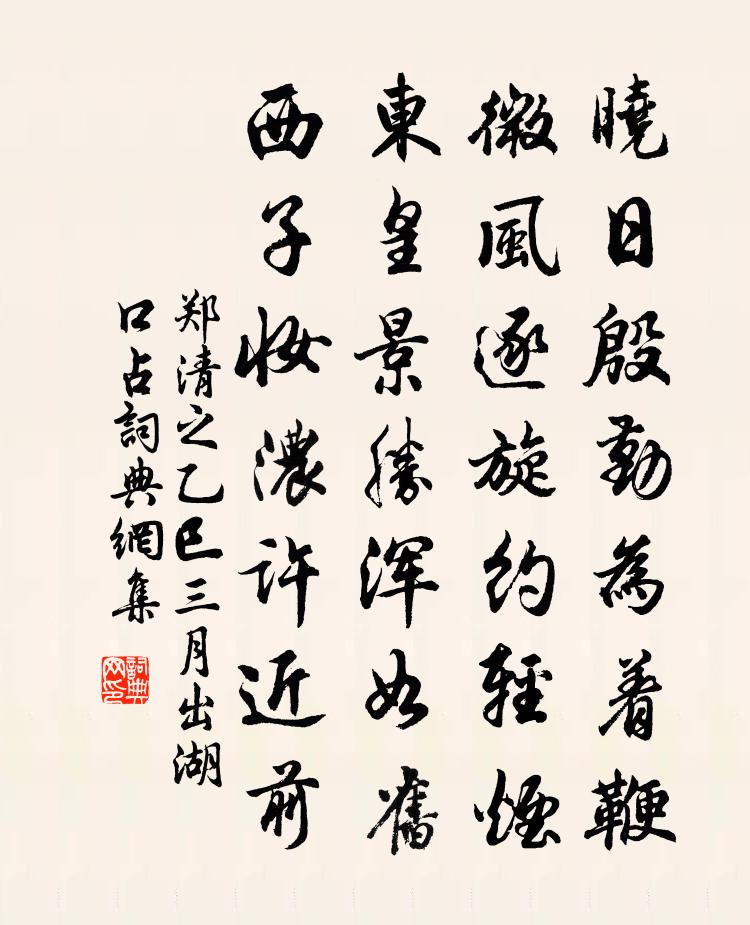 曉日殷勤為着鞭
微風逐旋約輕煙
東皇景勝渾如舊
西子妝濃許近前
郑清之乙巳三月出湖
口占詞典網集
詞典网印